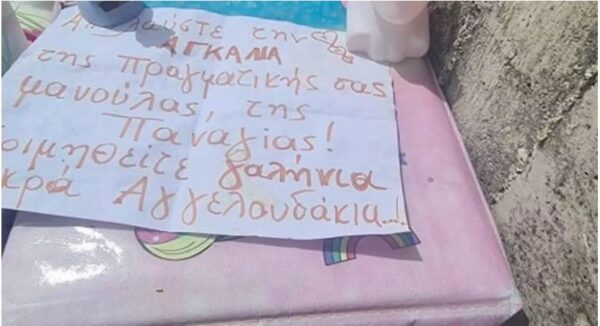 Απολαύστε την
ΑΓΚΑΛΙΑ
της πραγματικής σας
μανούλας, της
Παναγίας!
Κοιμηθείτε γαλήνια
μικρά Αγγελουδάκια...!